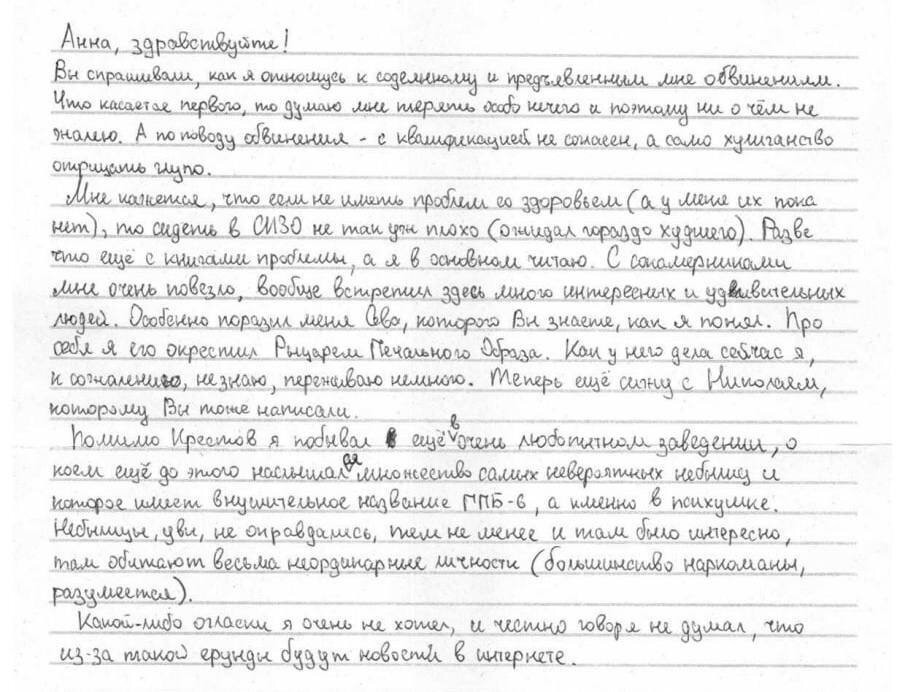 Анна, здравствуйте!
Вы спрашивали, как я отношусь к содеянному и предъявленным мне обвинениям.
Что касается первого, то думаю мне терять особо нечего и поэтому ни о чём не
жалею. А по поводу обвинения - с квалификацией не согласен, а само хулиганство
отрицать глупо.
Мне кажется, что если не иметь проблем со здоровьем (а у меня их пока
нет), то сидеть в СИЗО не так уж плохо (ожидал гораздо худшего). Разве
что ещё с книгами проблемы, а я в основном читаю. С сокамерниками
мне очень повезло, вообще встретил здесь много интересных и удивительных
людей. Особенно поразил меня Сева, которого Вы знаете, как я понял. Про
себя я его окрестил Рыцарем Печального Образа. Как у него дела сейчас я,
к сожалению, не знаю, переживаю немного. Теперь ещё сижу с Николаем,
которому Вы тоже написали.
Помимо Крестов я побывал ещё в очень любопытном заведении, о
коем ещё до этого наслышался множество самых невероятных небылиц и
которое имеет внушительное название ГПБ-6, а именно в психушке.
Небылицы, увы, не оправдались, тем не менее и там было интересно,
там обитают весьма неординарные личности (большинство наркоманы,
разумеется).
Какой-либо огласки я очень не хотел, и честно говоря не думал, что
из-за такой ерунды будут новости в интернете.